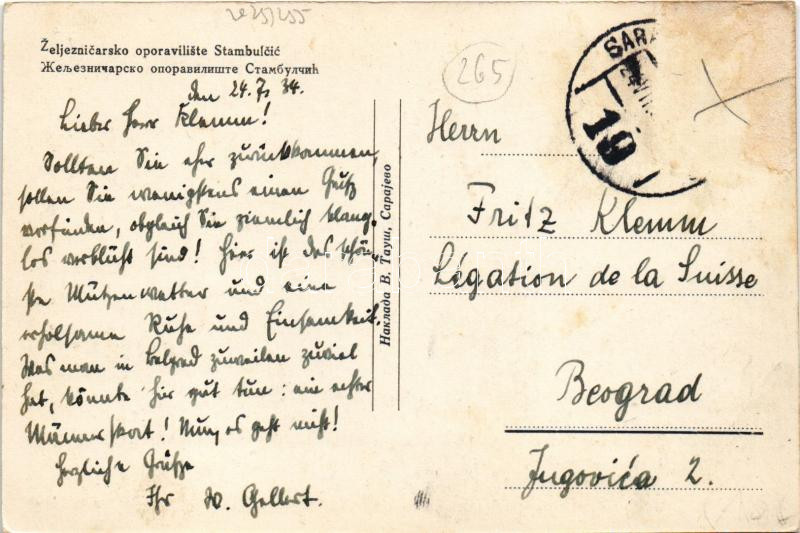 2e25/255
Željezničarsko oporavilište Stambulčić
Жељезничарско опоравилиште Стамбулчић
den 24.7. 34.
Lieber Herr Klemm!
Sollten Sie eher zurückkommen,
sollen Sie wenigstens einen Gruß
vorfinden, obgleich Sie ziemlich klang-
los verblüht sind! Hier ist das schön-
ste Mützenwetter und eine
erholsame Ruhe und Einsamkeit.
Was man in Belgrad zuweilen zuviel
hat, könnte hier gut tun: ein echter
Männerskat! Nun, es geht nicht!
Herzliche Grüße
Ihr W. Gellert.
Наклада В. Тауш, Сарајево
265
SARA
19
Herrn
Fritz Klemm
Légation de la Suisse
Beograd
Jugovića 2.